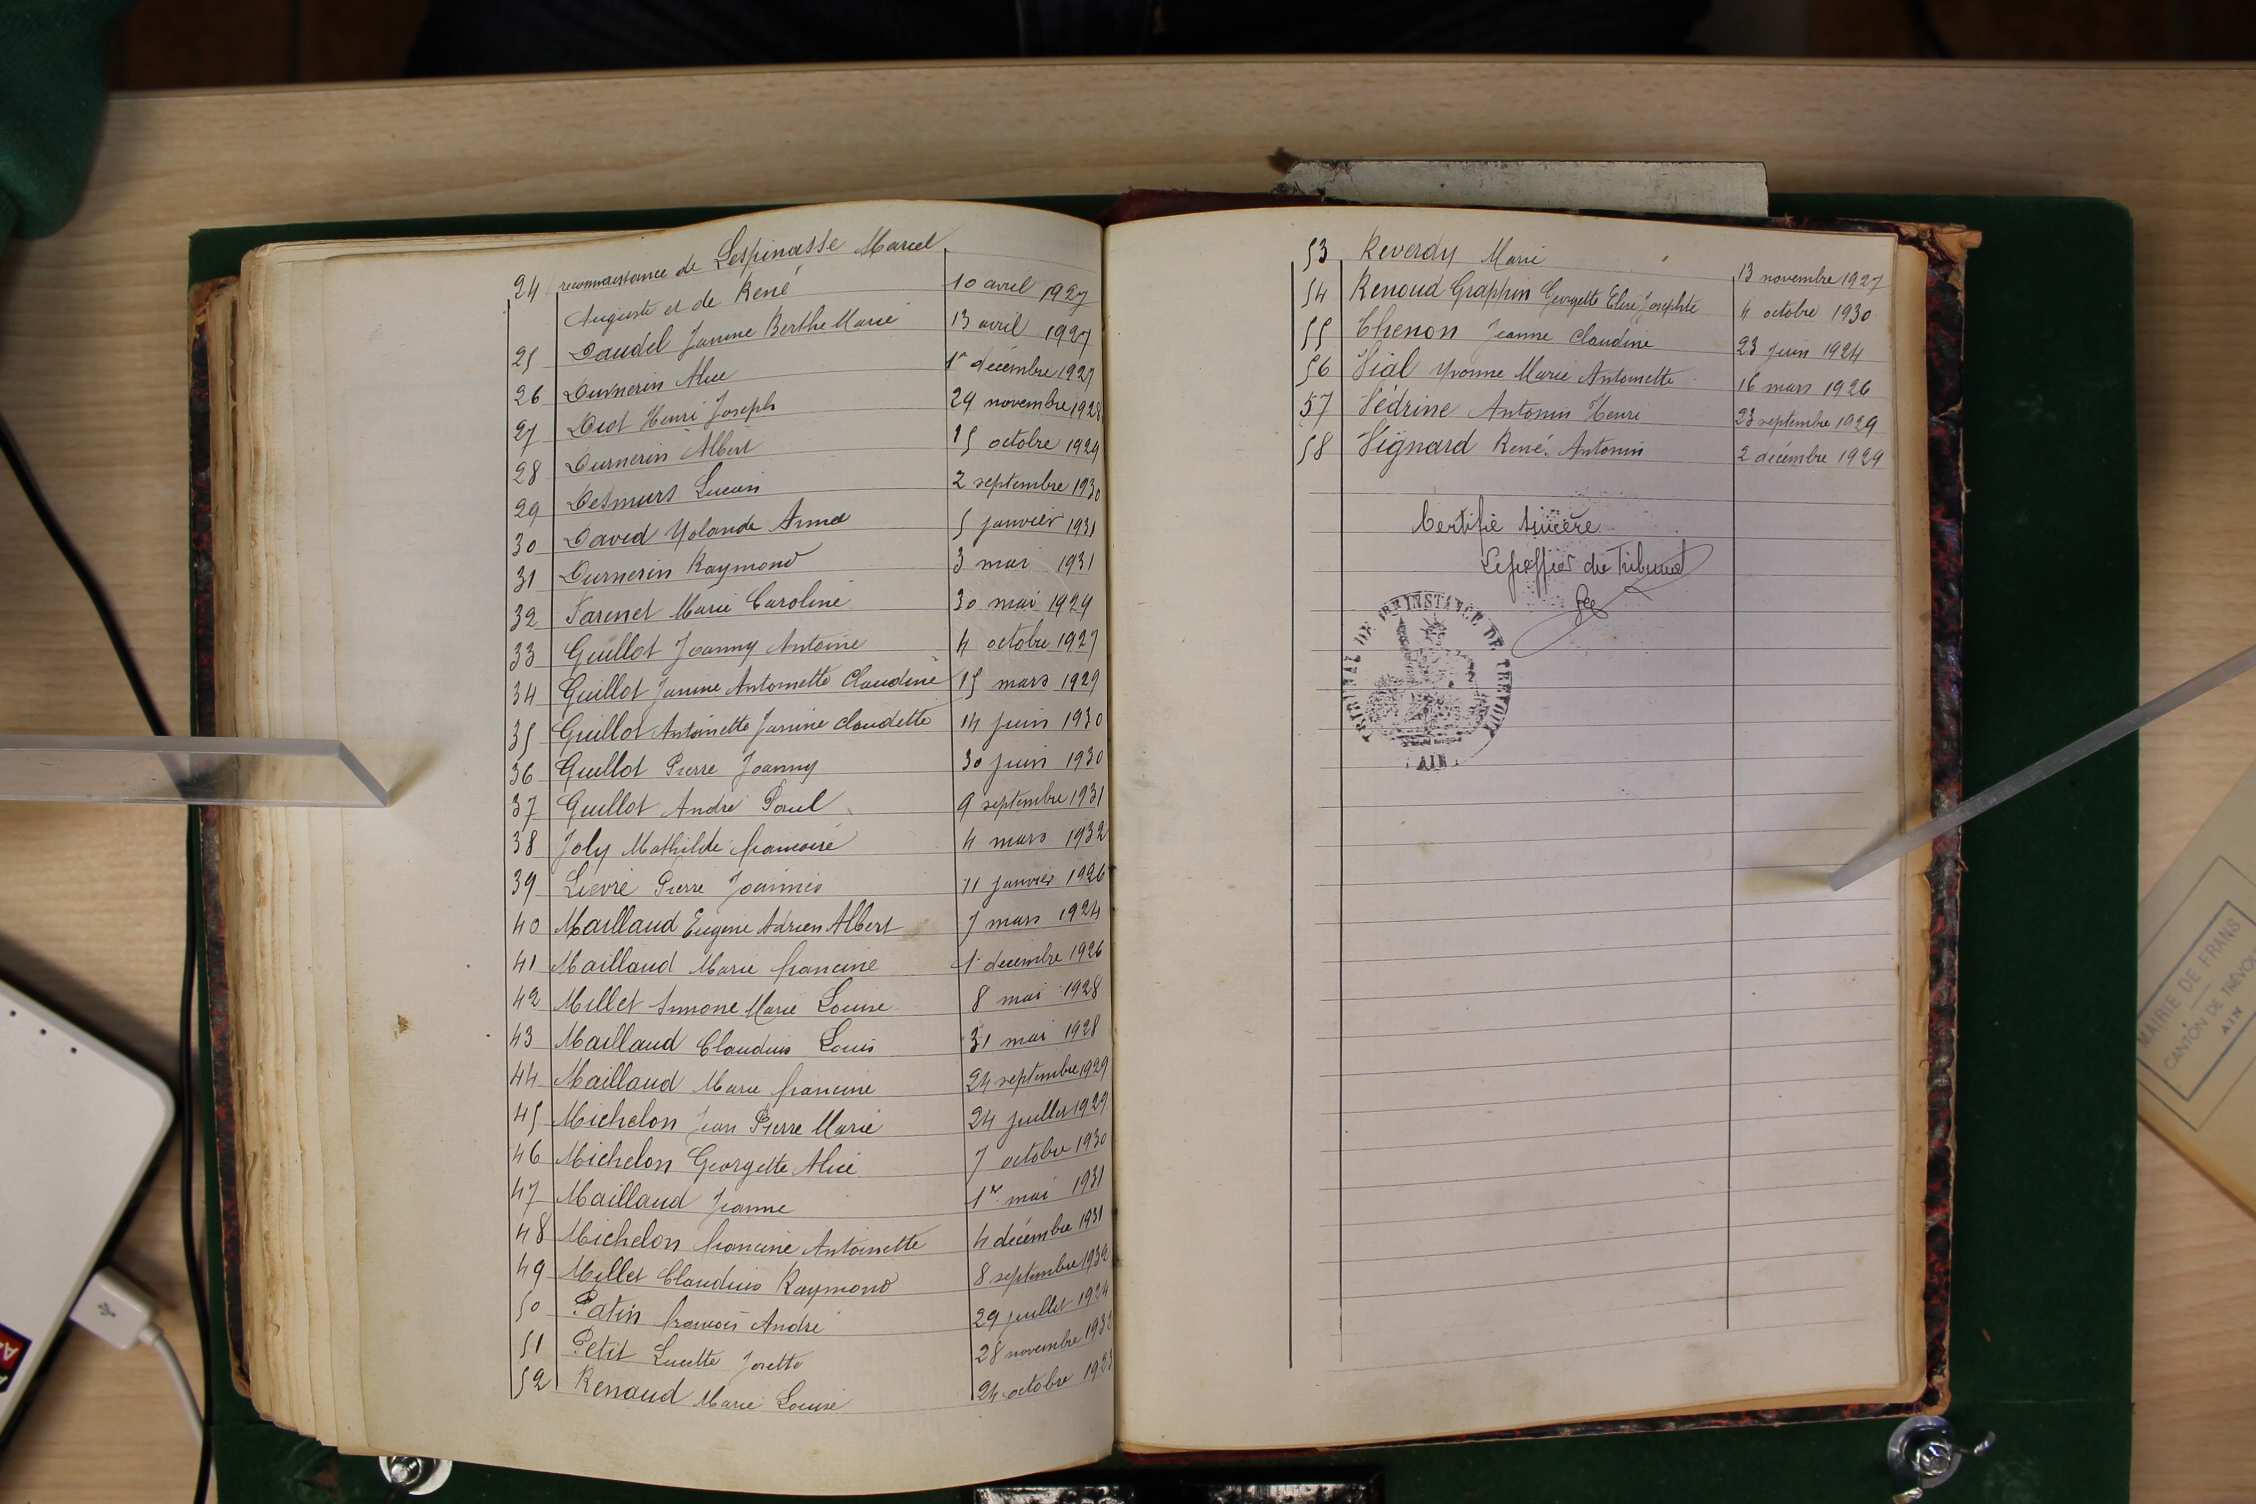 24 reconnaissance de Lespinasse Marcel
Auguste et de René 10 avril 1927
25 Daudel Janine Berthe Marie 13 avril 1927
26 Durnerin Alice 1er décembre 1927
27 Diot Henri Joseph 29 novembre 1928
28 Durnerin Albert 15 octobre 1929
29 Desmurs Lucien 2 septembre 1930
30 David Yolande Anna 5 janvier 1931
31 Durnerin Raymond 3 mai 1931
32 Farenet Marie Caroline 30 mai 1929
33 Guillot Joanny Antoine 4 octobre 1927
34 Guillot Janine Antoinette Claudine 15 mars 1929
35 Guillot Antoinette Janine Claudette 14 juin 1930
36 Guillot Pierre Joanny 30 juin 1930
37 Guillot André Paul 9 septembre 1931
38 Joly Mathilde francoise 4 mars 1932
39 Lievre Pierre Joannès 11 janvier 1926
40 Maillaud Eugène Adrien Albert 7 mars 1924
41 Maillaud Marie francine 1er décembre 1926
42 Millet Simone Marie Louise 8 mai 1928
43 Maillaud Claudius Louis 31 mai 1928
44 Maillaud Marie francine 24 septembre 1929
45 Michelon Jean Pierre Marie 24 juillet 1929
46 Michelon Georgette Alice 7 octobre 1930
47 Maillaud Jeanne 1er mai 1931
48 Michelon francine Antoinette 4 décembre 1931
49 Millet Claudius Raymond 8 septembre 1932
50 Patin francois André 29 juillet 1924
51 Petit Lucette Josette 28 novembre
52 Renaud Marie Louise 24 octobre 1923
53 Reverdy Marie 13 novembre 1927
54 Renoud Grappin Georgette Elise Josephte 4 octobre 1930
55 Thenon Jeanne Claudine 23 juin 1924
56 Vial Yvonne Marie Antoinette 16 mars 1926
57 Védrine Antonin Henri 23 septembre 1929
58 Vignard René Antonin 2 décembre 1929
Certifié sincère
Le greffier du Tribunal
TRIBUNAL DE 1RE INSTANCE DE TREVOUX
AIN
MAIRIE DE FRANS
CANTON DE TRÉVOUX
AIN